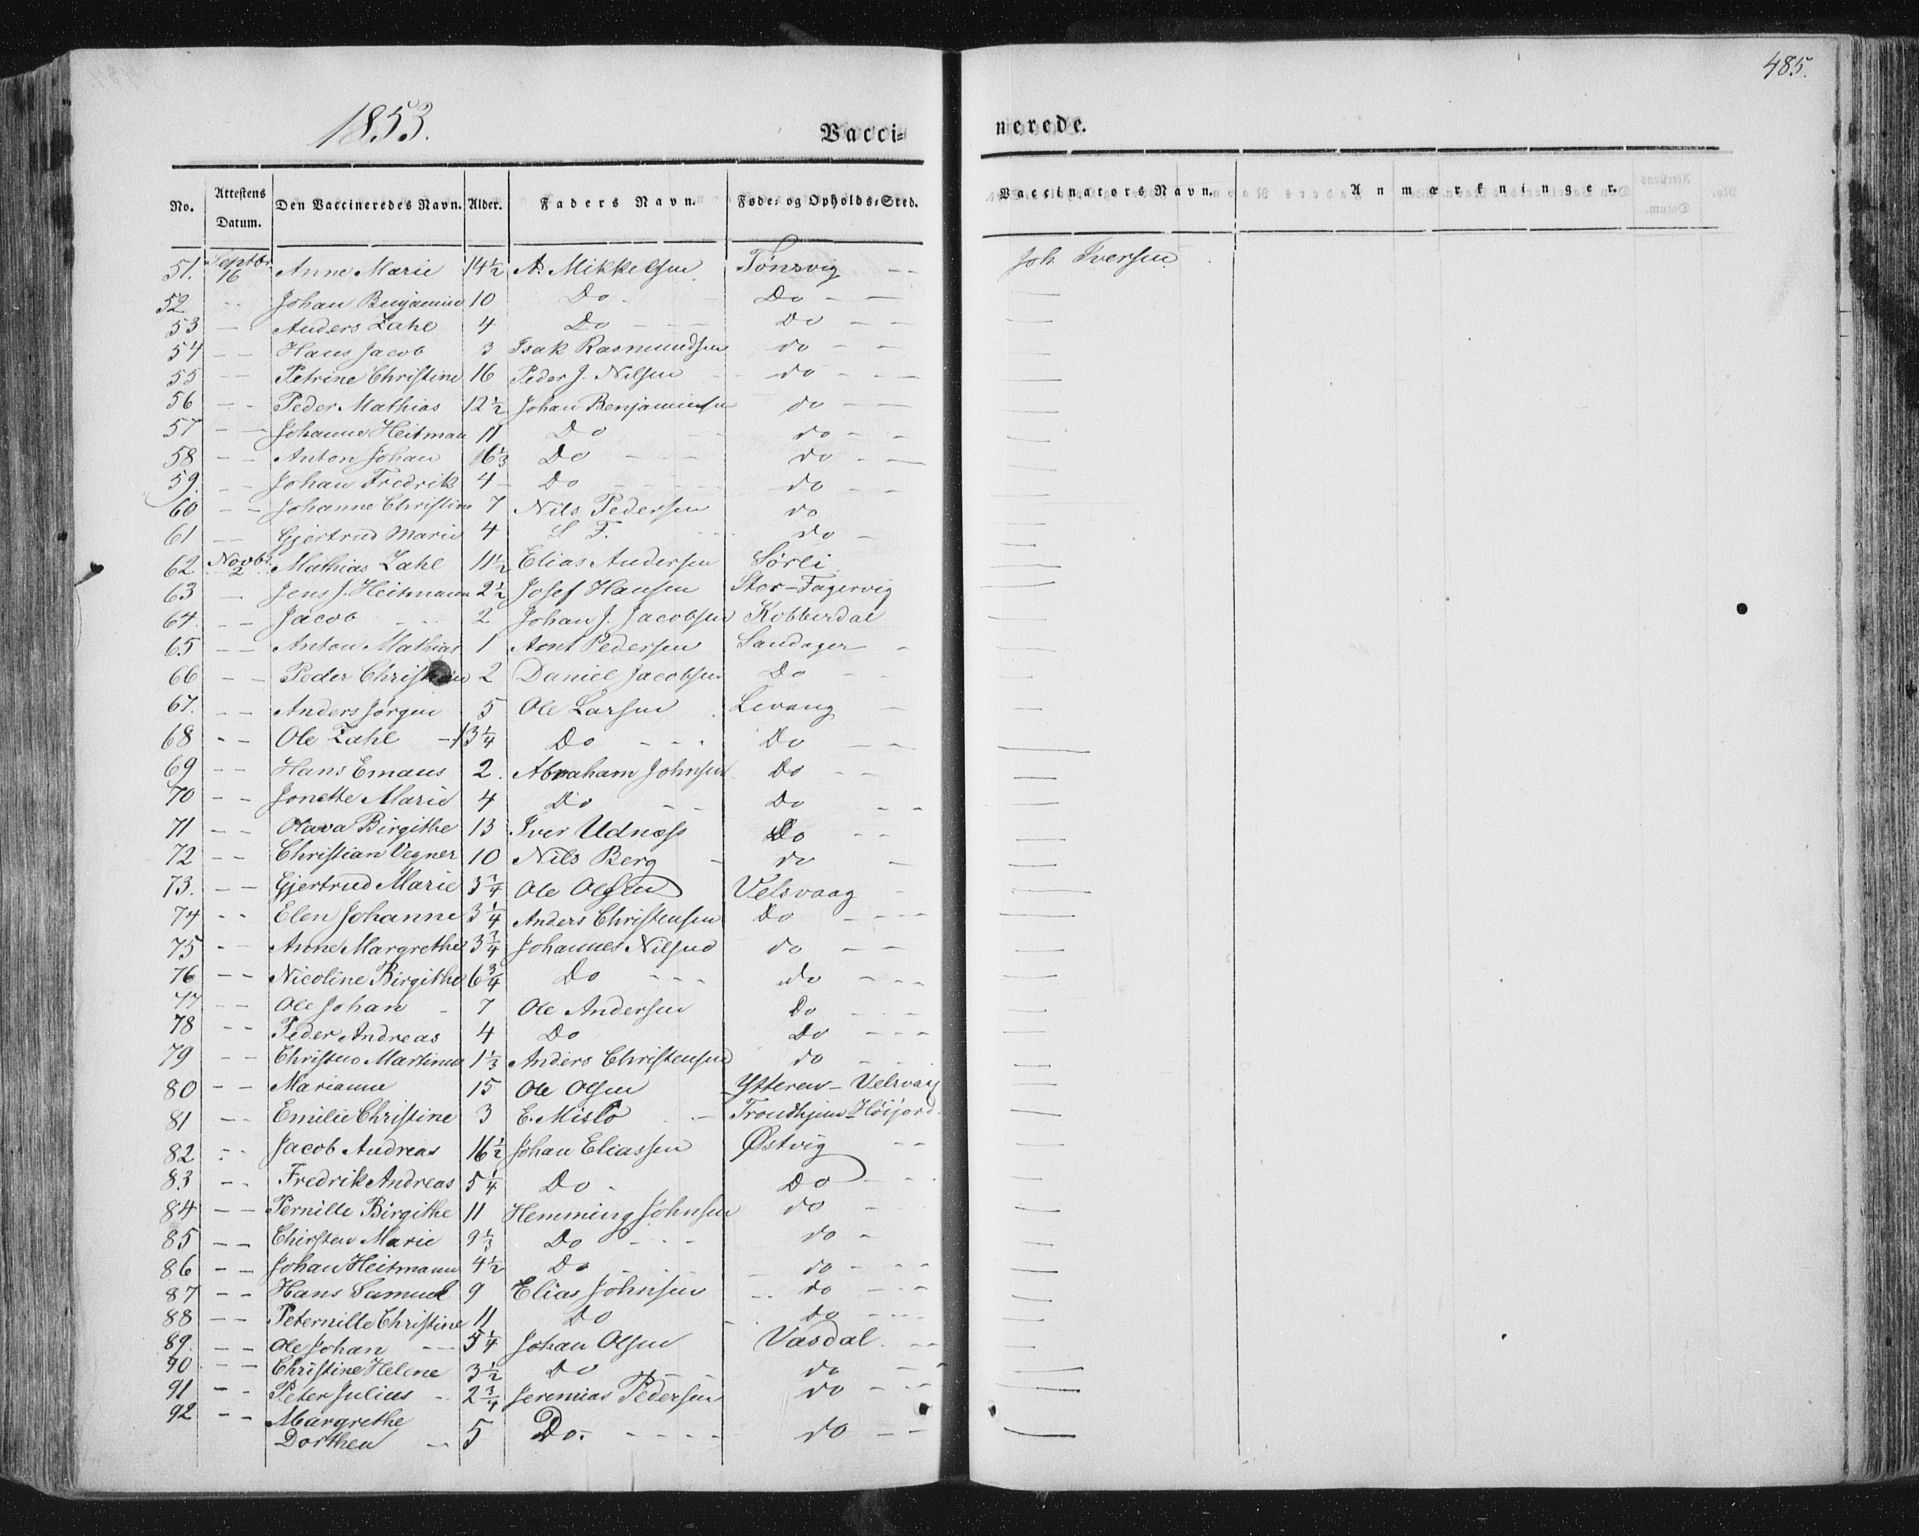 485.
1853.
Vacci-
nerede.
No. Attestens Datum. Den Vaccineredes Navn. Alder. Faders Navn. Føde- og Opholds-Sted. Vaccinators Navn. Anmærkninger.
51. Septbr 16 Anne Marie 14½ A. Mikkelsen Tønsvig - - Joh. Iversen
52 - - Johan Benjamin 10 Do - Do - - —
53 - - Anders Zahl 4 Do - - - Do - - —
54 - - Hans Jacob 3 Isak Rasmundsen do - - —
55 - - Petrine Christine 16 Peder J. Nilsen do - - - —
56 - - Peder Mathias 12½ Johan Benjaminsen do - - —
57 - - Johanne Heitman 11 Do - - do - - —
58 - - Anton Johan 16⅓ Do - - - do - - —
59. - - Johan Fredrik 4 - Do - - - do - - —
60 - - Johanne Christine 7 Nils Pedersen do —
61 - - Gjertrud Marie 4 S F. - - do - —
62. Novbr. 2 Mathias Zahl 11½ Elias Andersen Sørli —
63 - Jens J. Heitmann 2½ Josef Hansen Stor-Fagervig —
64. - - Jacob - - 2 Johan J. Jacobsen Kobberdal —
65 - - Anton Mathias 1 Arnt Pedersen Sandager - —
66 - - Peder Christian 2 Daniel Jacobsen Do - - —
67. - - Anders Jørgen 5 Ole Larsen Levang - —
68 - - Ole Zahl - 13¼ Do - - - Do - - —
69 - - Hans Emaus 2. Abraham Johnsen Do - - —
70 - - Jonette Marie 4 Do - - Do - - —
71 - - Olava Birgithe 13 Iver Udness Do - - —
72 - - Christian Vegner 10 Nils Berg - do - —
73. - - Gjertrud Marie 3¾ Ole Olsen Velsvaag - —
74 - - Elen Johanne 3¼ Anders Christensen Do - - - —
75 - - Anne Margrethe 3¾ Johannes Nilsen do - - —
76 - - Nicoline Birgithe 6¾ Do - - - do - - - —
77 - - Ole Johan - 7 Ole Andersen Do - - - —
78 - - Peder Andreas 4 Do Do - - - —
79 - - Christen Martinus 1⅓ Anders Christensen do - - - —
80 - - Marianne 15 Ole Olsen Ytteren - Velsvaag —
81 - - Emilie Christine 3 E. Mislo - - Trondhjem - Høifjord —
82 - - Jacob Andreas 16½ Johan Eliassen Østvig - - —
83 - - Fredrik Andreas 5¼ Do - Do - - - —
84 - - Pernille Birgithe 11 Hemming Johnsen do - - —
85 - - Chirsten Marie 9⅓ Do - - - do - —
86 - - Johan Heitmann 4½ Do - do - - - —
87 - - Hans Samuel 9 Elias Johnsen do - - - —
88 - - Peternille Christine 11 Do do - - - —
89. - - Ole Johan - - 5¼ Johan Olsen Vasdal - - —
90 - - Christine Helene 3½ Do - do - - —
91 - - Peter Julius - 2¾ Jeremias Pedersen do - - - —
92 - - Margrethe
Dorthea - 5 Do. - - - - do - - —